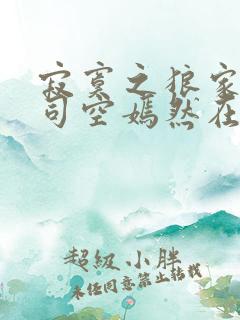 寂寞之狼家
司空嫣然在
超级小胖
未经同意禁止转载